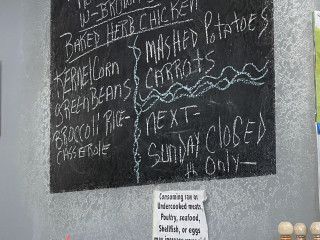 W-BROWN
BAKED HERB CHICKEN
KERNEL CORN
GREEN BEANS
BROCCOLI RICE-
CASSEROLE
MASHED POTATOES
CARROTS
NEXT-
SUNDAY CLOSED
th ONLY-
Consuming raw or
Undercooked meats,
Poultry, seafood,
Shellfish, or eggs
may increase